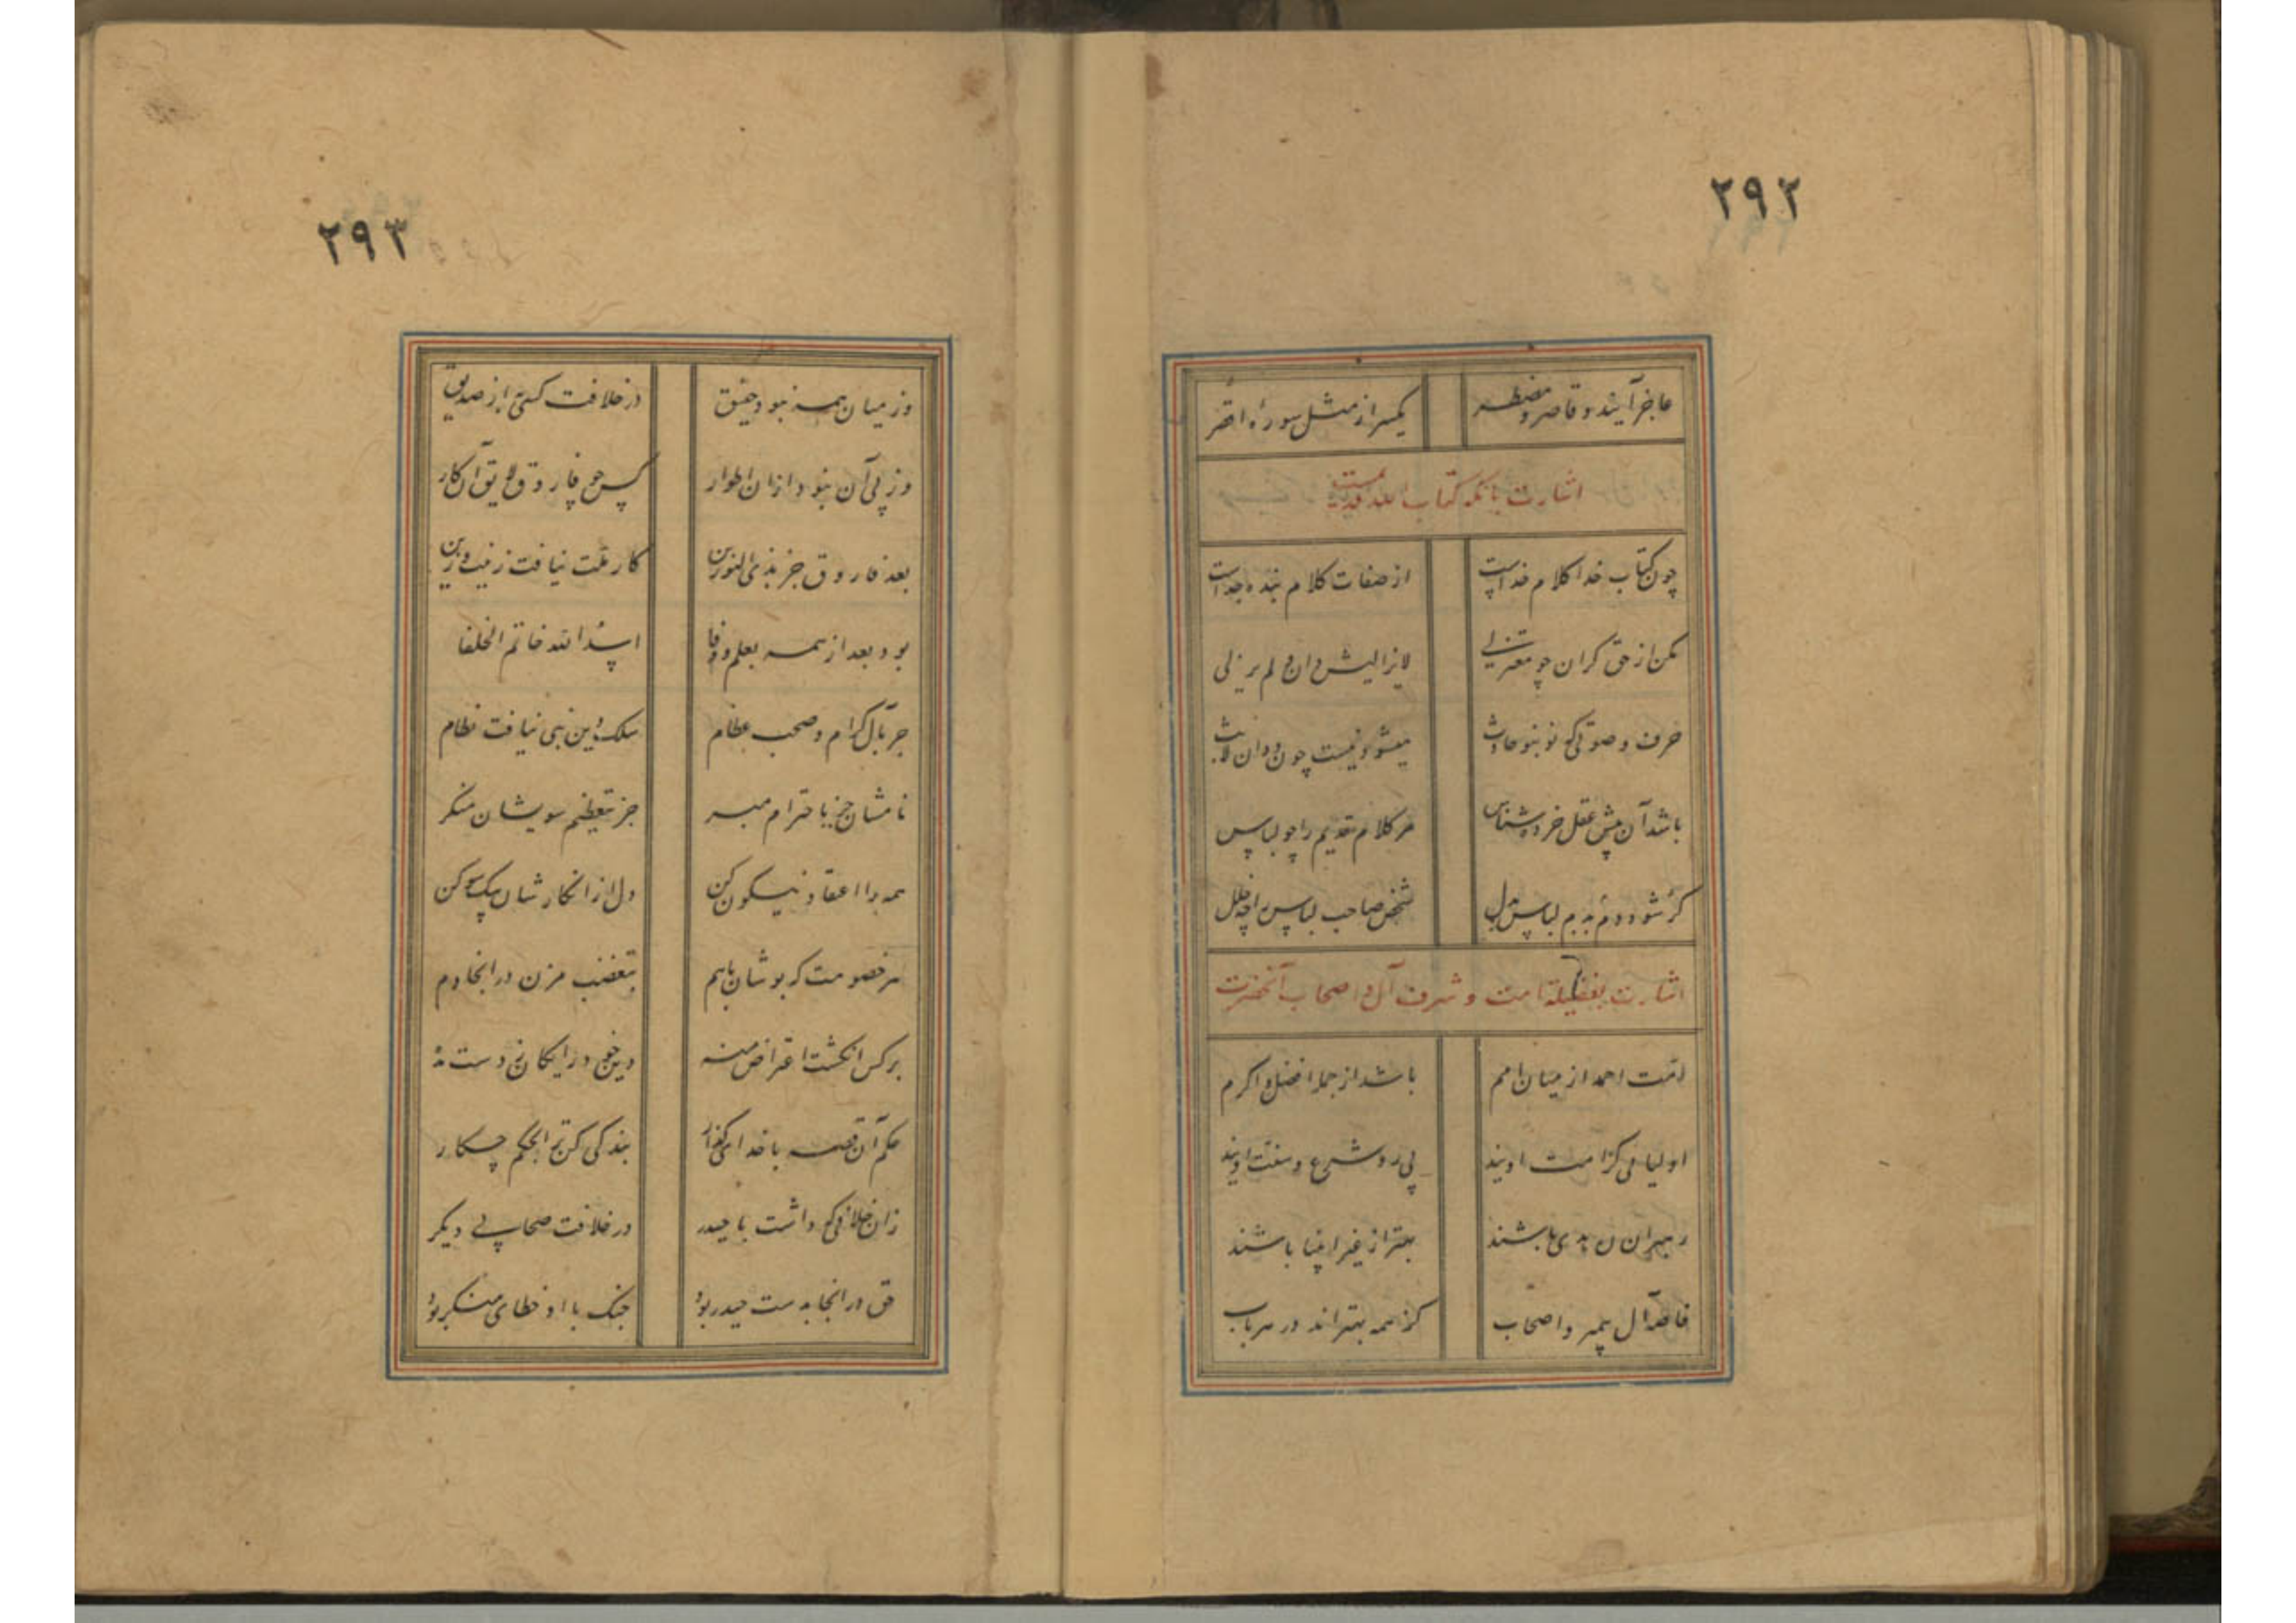 ٢٩٢
عاجز آیند و قاصر و مضطر یکسر از مثل سورهٔ اقصر
اشارت بانکه کتاب الله قدیمست
چون کتاب خدا کلام خداست از صفات کلام بنده جداست
مکن از حق کران چو معتزلی لایزالیش دان و لم یزلی
حرف و صوتی که نو بنو حادث میشود نیست چون دوان لابث
باشد آن پیش عقل خرده شناس مر کلام قدیم را چو لباس
گر شود دم بدم لباس بدل شخص صاحب لباس را چه خلل
اشارت بفضیلة امت و شرف آل و اصحاب آنحضرت
امت احمد از میان امم باشد از جمله افضل و اکرم
اولیائی کز امت اویند پی رو شرع و سنت اویند
رهبران ره هدی باشند بهتر از غیر انبیا باشند
خاصه آل پیمبر و اصحاب کز همه بهتراند در هر باب
٢٩٣
وز میان همه نبود حقیق در خلافت کسی به از صدیق
وز پی آن نبود از آن اطوار کس چو فاروق لایق آن کار
بعد فاروق جز بذی النورین کار ملت نیافت زینت و زین
بود بعد از همه بعلم و وفا اسد الله خاتم الخلفا
جز بآل کرام و صحب عظام سلک دین نبی نیافت نظام
نامشان جز باحترام مبر جز بتعظیم سویشان منگر
همه را اعتقاد نیکو کن دل از انکارشان بیکسو کن
هر خصومت که بودشان باهم بتعصب مزن در آنجا دم
بر کس انگشت اعتراض منه دین خود رایگان ز دست مده
حکم آن قصه با خدای گذار بندگی کن ترا بحکم چکار
زان خلافی که داشت با حیدر در خلافت صحابی دیگر
حق در آنجا بدست حیدر بود جنگ با او خطای منکر بود